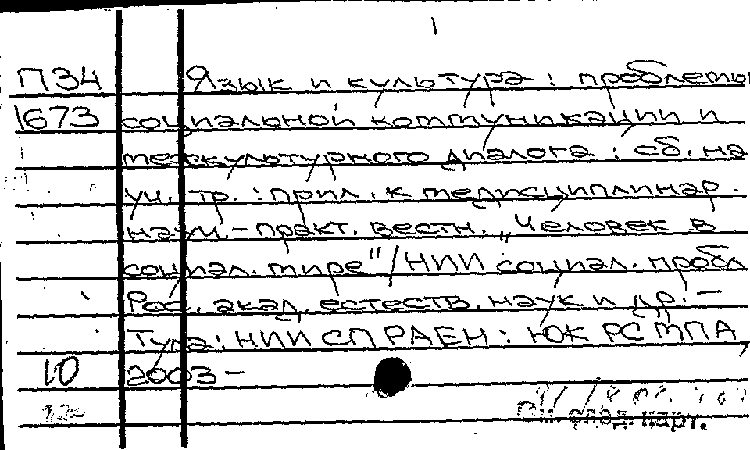 1
П34 Язык и культура : проблемы
1673 социальной коммуникации и
межкультурного диалога : сб. на
уч. тр. : прил. к междисциплинар.
научн.-практ. вестн. „Человек в
социал. мире"/НИИ социал. пробл
Рос. акад. естеств. наук и др. –
Тула : НИИ СП РАЕН : ЮК РС МПА,
10 2003 –
См. след. карт.